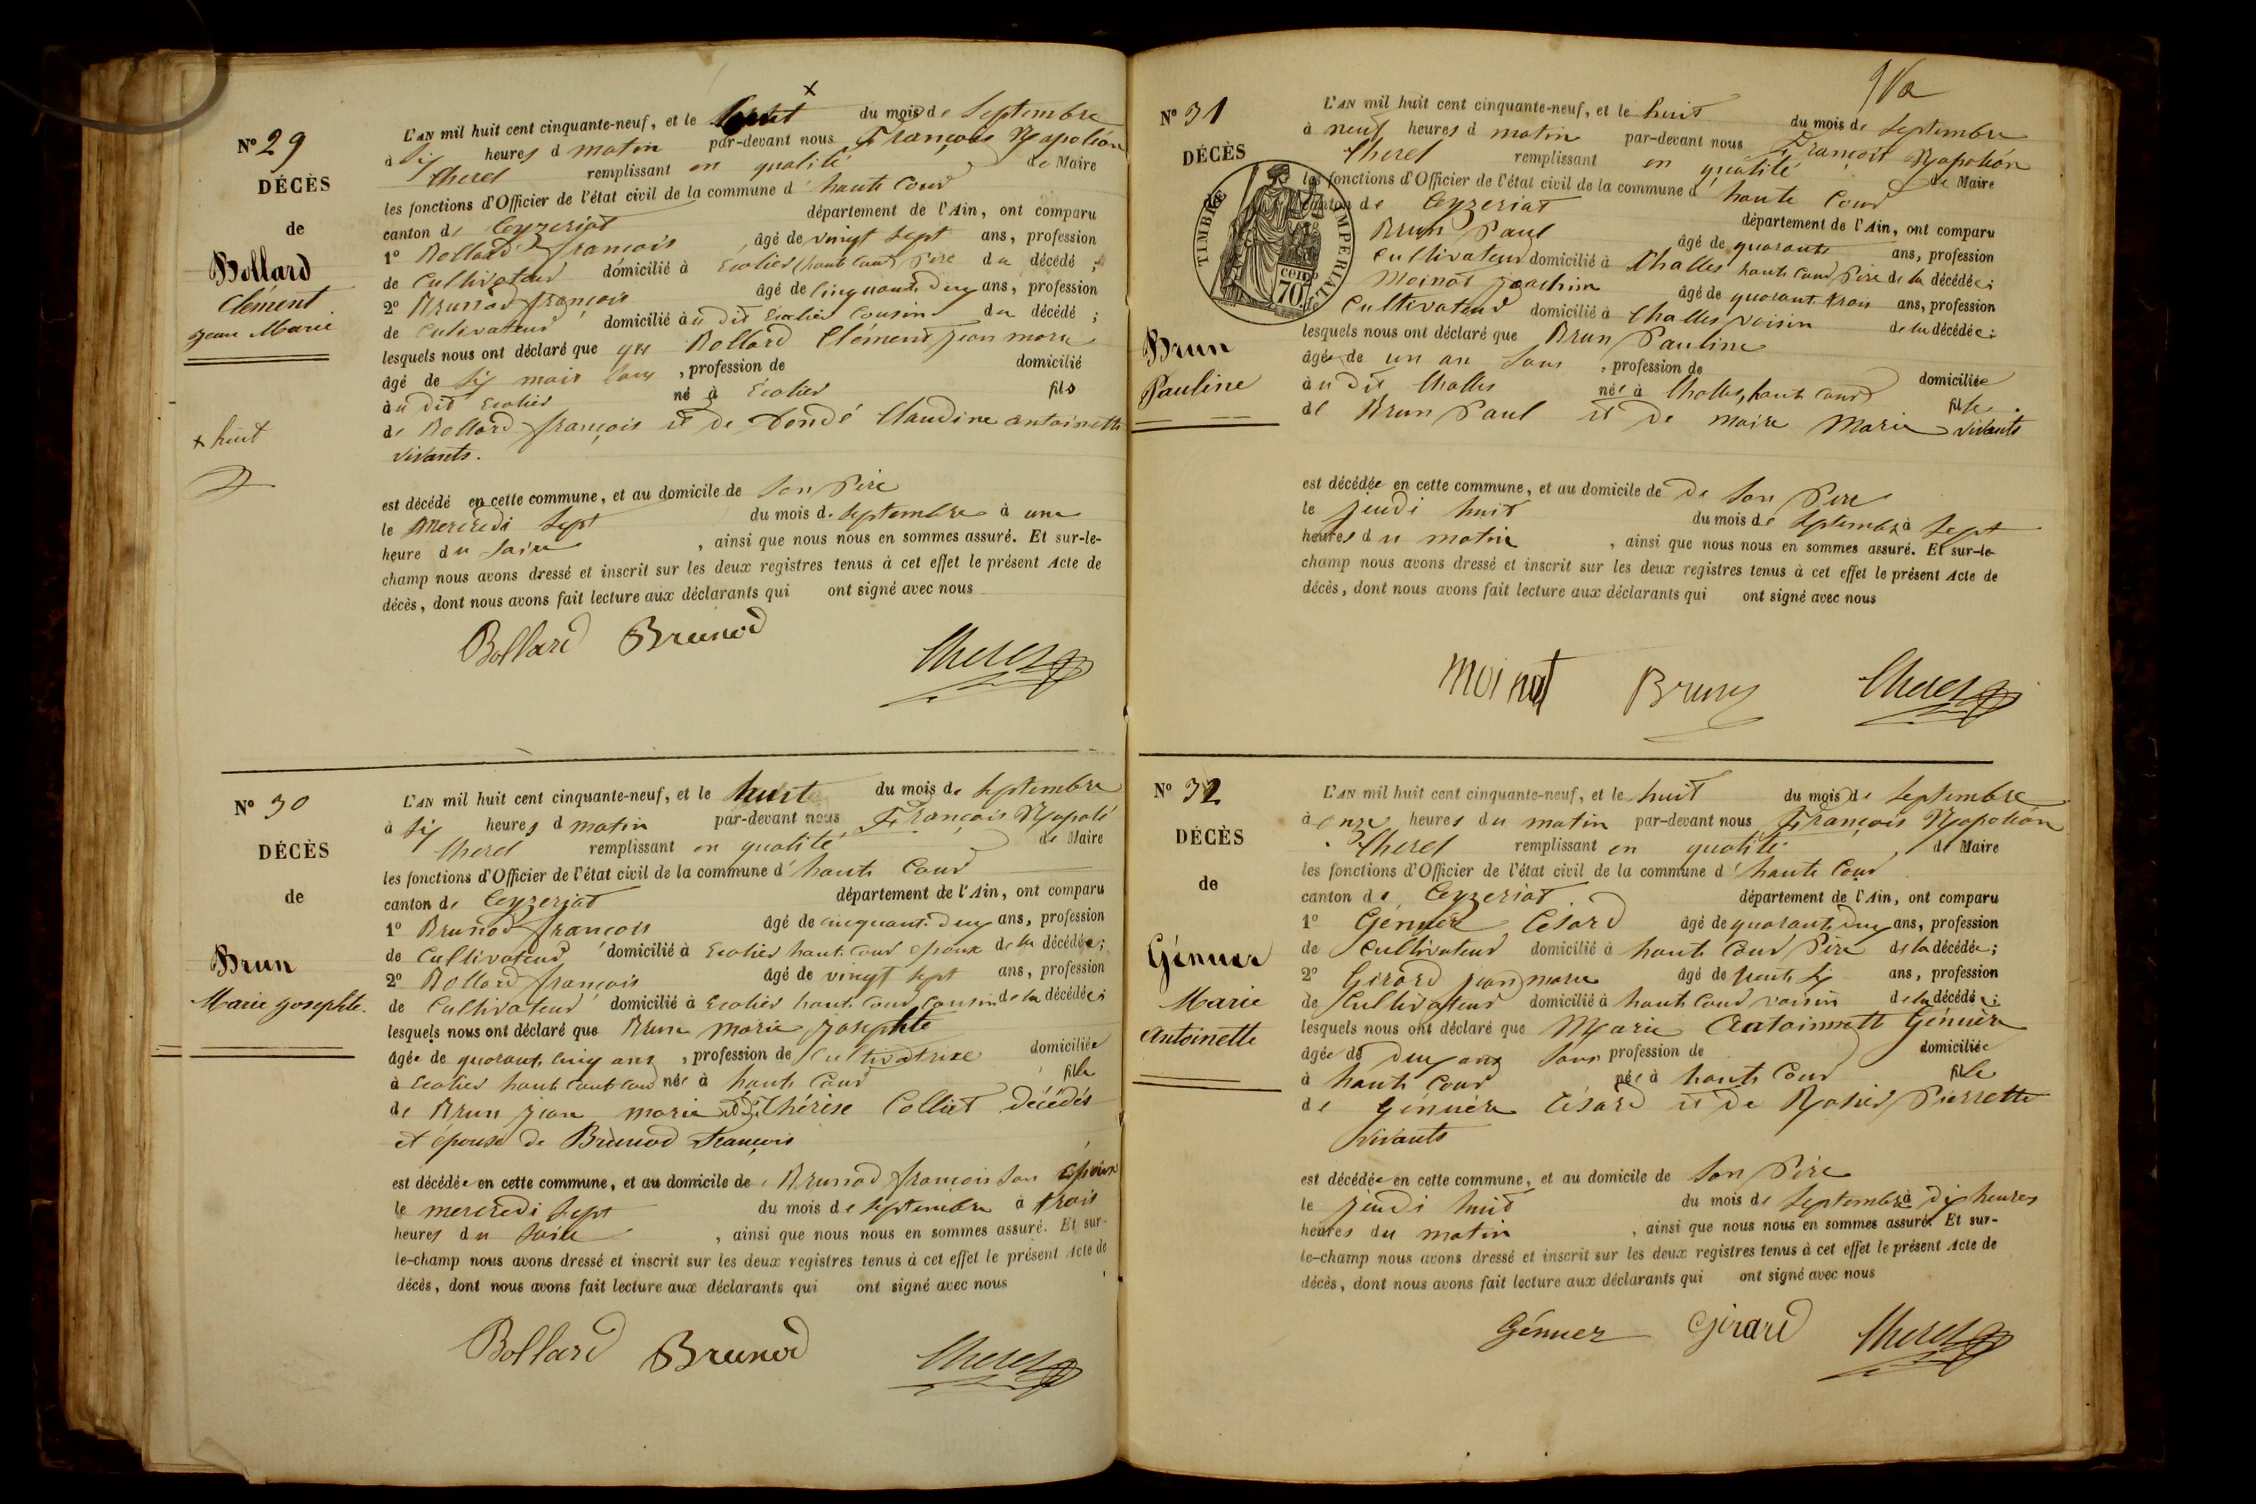 N° 29
DÉCÈS
de
Bollard
Clément
Jean Marie
x huit
x
L'AN mil huit cent cinquante-neuf, et le du mois de Septembre
à Six heures d matin par-devant nous François Napoléon
Cheret remplissant en qualité de Maire
les fonctions d'Officier de l'état civil de la commune d haute Cour
canton de Ceyzeriat département de l'Ain, ont comparu
1° Bollard françois âgé de vingt Sept ans, profession
de Cultivateur domicilié à Ecolier (haute Cour) Père du décédé ;
2° Brunod françois âgé de Cinquante Deux ans, profession
de Cultivateur domicilié àu dit Ecolier Cousin du décédé ;
lesquels nous ont déclaré que que Bollard Clément jean marie
âgé de Six mois Sans , profession de domicilié
àu dit Ecolier né à Ecolier fils
de Bollard françois et de Dondé Claudine antoinette
vivants.
est décédé en cette commune, et au domicile de Son Père
le Mercredi Sept du mois de Septembre à une
heure du Soire , ainsi que nous nous en sommes assuré. Et sur-le-
champ nous avons dressé et inscrit sur les deux registres tenus à cet effet le présent Acte de
décès, dont nous avons fait lecture aux déclarants qui ont signé avec nous
Bollard Brunod Cheret
N° 30
DÉCÈS
de
Brun
Marie Josephte.
L'AN mil huit cent cinquante-neuf, et le huit du mois de Septembre
à Six heures d matin par-devant nous François Napolé
Cheret remplissant en qualité de Maire
les fonctions d'Officier de l'état civil de la commune d haute Cour
canton de Ceyzeriat département de l'Ain, ont comparu
1° Brunod françois âgé de cinquante Deux ans, profession
de Cultivateur domicilié à Ecolier haute Cour epoux de la décédée;
2° Bollard françois âgé de vingt Sept ans, profession
de Cultivateur domicilié à Ecolier haute Cour Cousin de la décédée;
lesquels nous ont déclaré que Brun marie josephte
âgée de quarante Cinq ans , profession de Cultivatrice domiciliée
à Ecolier haute Cour née à haute Cour fille
de Brun jean marie et de Thérèse Colliet décédés
et épouse de Brunod François
est décédée en cette commune, et au domicile de Brunod françois Son époux
le mercredi Sept du mois de Septembre à trois
heures du Soire , ainsi que nous nous en sommes assuré. Et sur-
le-champ nous avons dressé et inscrit sur les deux registres tenus à cet effet le présent Acte de
décès, dont nous avons fait lecture aux déclarants qui ont signé avec nous
Bollard Brunod Cheret
N° 31
DÉCÈS
TIMBRE IMPERIAL
70 cent
Brun
Pauline
L'AN mil huit cent cinquante-neuf, et le huit du mois de Septembre
à neuf heures d matin par-devant nous François Napoléon
Cheret remplissant en qualité de Maire
les fonctions d'Officier de l'état civil de la commune d haute Cour
canton de Ceyzeriat département de l'Ain, ont comparu
Brun Paul âgé de quarante ans, profession
Cultivateur domicilié à Challes haute Cour Père de la décédée;
Moinat joachim âgé de quarante trois ans, profession
Cultivateur domicilié à Challes voisin de la décédée;
lesquels nous ont déclaré que Brun Pauline
âgée de un an Sans , profession de domiciliée
àu dit Challes née à Challes, haute Cour fille
de Brun Paul et de maire Marie vivants
est décédée en cette commune, et au domicile de De Son Père
le jeudi huit du mois de Septembre à Sept
heures du matin , ainsi que nous nous en sommes assuré. Et sur-le-
champ nous avons dressé et inscrit sur les deux registres tenus à cet effet le présent Acte de
décès, dont nous avons fait lecture aux déclarants qui ont signé avec nous
Moinat Brun Cheret
N° 32
DÉCÈS
de
Génuer
Marie
Antoinette
L'AN mil huit cent cinquante-neuf, et le huit du mois de Septembre
à onze heures du matin par-devant nous François Napoléon
Cheret remplissant en qualité de Maire
les fonctions d'Officier de l'état civil de la commune d haute Cour
canton de Ceyzeriat département de l'Ain, ont comparu
1° Génuer Césard âgé de quarante Deux ans, profession
de Cultivateur domicilié à haute Cour Père de la décédée;
2° Girard jean marie âgé de trente Six ans, profession
de Cultivateur domicilié à haute Cour voisin de la décédée;
lesquels nous ont déclaré que Marie Antoinette Génuère
âgée de Deux ans Sans profession de domiciliée
à haute Cour née à haute Cour fille
de Génuère Césard et de Pierrette
vivants
est décédée en cette commune, et au domicile de Son Père
le jeudi huit du mois de Septembre à Dix heures
heures du matin , ainsi que nous nous en sommes assuré. Et sur-
le-champ nous avons dressé et inscrit sur les deux registres tenus à cet effet le présent Acte de
décès, dont nous avons fait lecture aux déclarants qui ont signé avec nous
Génuer Girard Cheret